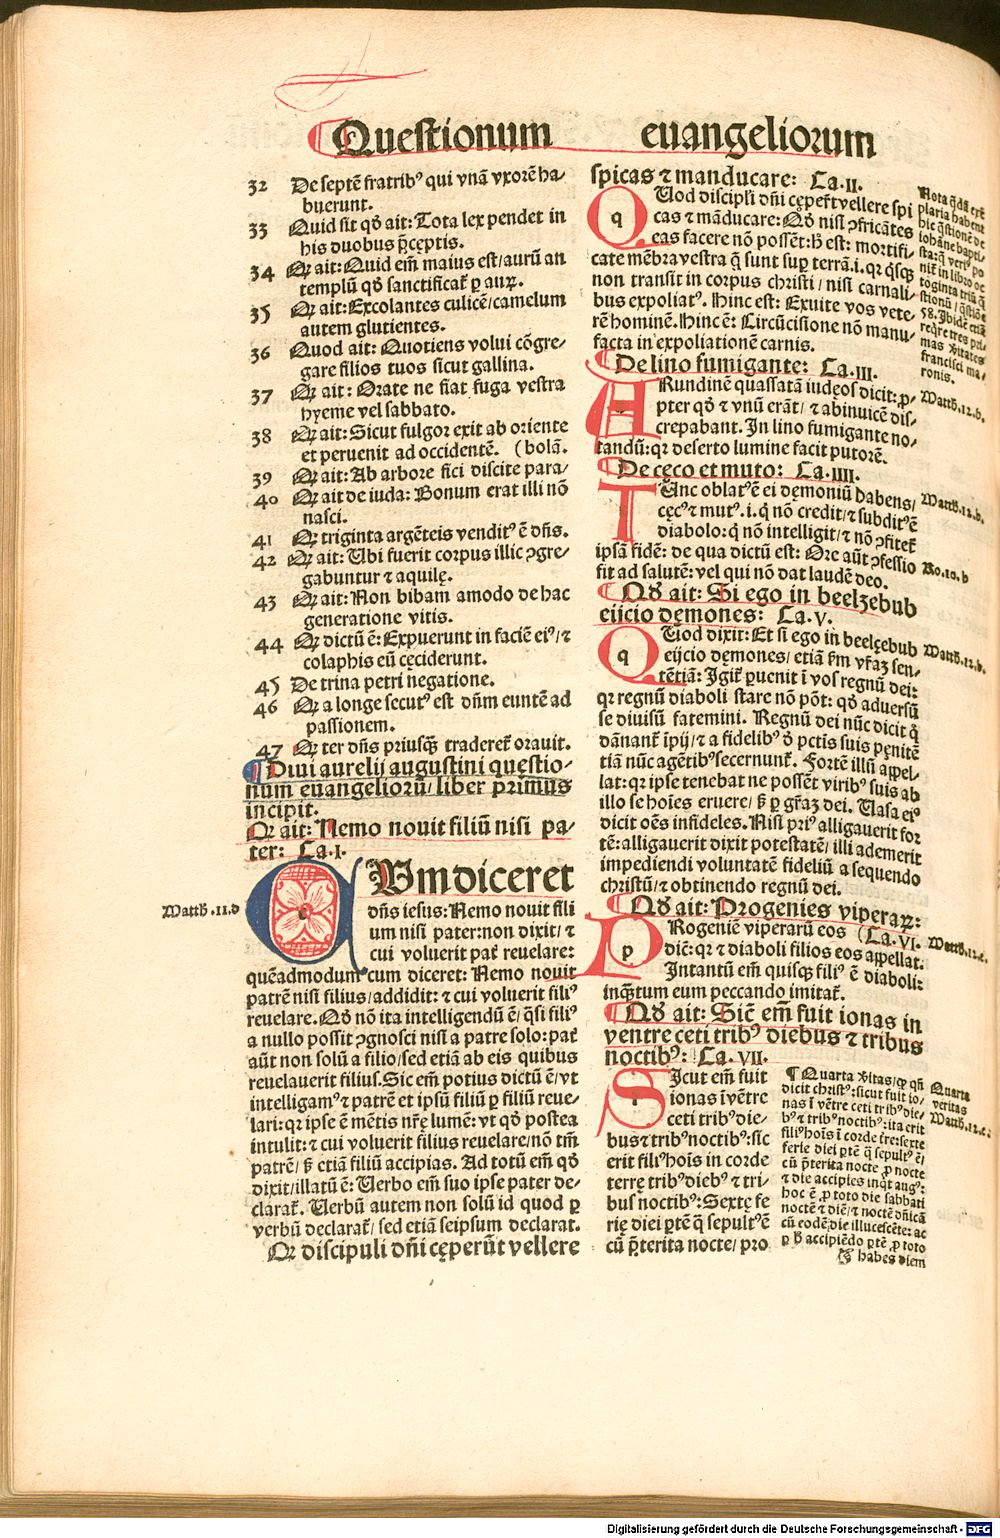 Questionum euangeliorum
32 De septē fratribꝰ qui vnā vxorē ha-
buerunt.
33 Quid sit qđ ait: Tota lex pendet in
his duobus p̄ceptis.
34 Qꝛ ait: Quid em̄ maius est/aurū an
templū qđ sanctificat̄ ꝑ auꝝ.
35 Qꝛ ait: Excolantes culicē/camelum
autem glutientes.
36 Quod ait: Quotiens volui cōgre-
gare filios tuos sicut gallina.
37 Qꝛ ait: Orate ne fiat fuga vestra
hyeme vel sabbato.
38 Qꝛ ait: Sicut fulgor exit ab oriente
et peruenit ad occidentē. (bolā.
39 Qꝛ ait: Ab arbore fici discite para-
40 Qꝛ ait de iuda: Bonum erat illi nō
nasci.
41 Qꝛ triginta argēteis venditꝰ ē dn̄s.
42 Qꝛ ait: Ubi fuerit corpus illic ꝯgre-
gabuntur ⁊ aquilę.
43 Qꝛ ait: Non bibam amodo de hac
generatione vitis.
44 Qꝛ dictū ē: Expuerunt in faciē eiꝰ/⁊
colaphis eū cęciderunt.
45 De trina petri negatione.
46 Qꝛ a longe secutꝰ est dn̄m euntē ad
passionem.
47 Qꝛ ter dn̄s priusꝗ̄ traderet̄ orauit.
Diui aurelij augustini questio-
num euangeliorū/ liber primus
incipit.
Qꝛ ait: Nemo nouit filiū nisi pa-
ter: Ca.I.
Matth.11.d
CUm diceret
dn̄s iesus: Nemo nouit fili
um nisi pater: non dixit/ ⁊
cui voluerit pat̄ reuelare:
quēadmodum cum diceret: Nemo nouit
patrē nisi filius/addidit: ⁊ cui voluerit filiꝰ
reuelare. Qđ nō ita intelligendū ē/ q̄si filiꝰ
a nullo possit ꝯgnosci nisi a patre solo: pat̄
aūt non solū a filio/sed etiā ab eis quibus
reuelauerit filius. Sic em̄ potius dictū ē/vt
intelligamꝰ ⁊ patrē et ipsū filiū ꝑ filiū reue-
lari: qꝛ ipse ē mētis nr̄ę lumē: vt qđ postea
intulit: ⁊ cui voluerit filius reuelare/nō tm̄
patrē/ s̄ etiā filiū accipias. Ad totū em̄ qđ
dixit/illatū ē: Uerbo em̄ suo ipse pater de-
clarat̄. Uerbū autem non solū id quod ꝑ
verbū declarat̄/ sed etiā seipsum declarat.
Qꝛ discipuli dn̄i cęperūt vellere
spicas ⁊ manducare: Ca.II.
QUod discipli dn̄i cęper̄t vellere spi
cas ⁊ māducare: Qđ nisi ꝯfricātes
eas facere nō possēt: h̄ est: mortifi-
cate mēbra vestra q̄ sunt suꝑ terrā.i. qꝛ q̄sꝗ
non transit in corpus christi/ nisi carnali-
bus expoliatꝰ. Hinc est: Exuite vos vete-
rē hominē. Hinc ē: Circūcisione nō manu-
facta in expoliationē carnis.
De lino fumigante: Ca.III.
ARundinē quassatā iudęos dicit: ꝓ-
pter qđ ⁊ vnū erāt/ ⁊ abinuicē dis-
crepabant. In lino fumigante no-
tandū: qꝛ deserto lumine facit putorē.
Matth.12.b.
De cęco et muto: Ca.IIII.
TUnc oblatꝰ ē ei dęmoniū habens/
cęcꝰ ⁊ mutꝰ.i. q̄ nō credit/ ⁊ subditꝰ ē
diabolo: q̄ nō intelligit/ ⁊ nō ꝯfitet̄
ipsā fidē: de qua dictū est: Ore aūt ꝯfessio
fit ad salutē: vel qui nō dat laudē deo.
Matth.12.b.
Ro.10.b
Qđ ait: Si ego in beelzebub
eijcio dęmones: Ca.V.
QUod dixit: Et si ego in beelcebub
eijcio dęmones/ etiā s̄m vr̄az sen-
tētiā: Igit̄ ꝑuenit ī vos regnū dei:
qꝛ regnū diaboli stare nō pōt: qđ aduersū
se diuisū fatemini. Regnū dei nūc dicit q̄
dānant̄ īpij/ ⁊ a fidelibꝰ đ pctīs suis pęnitē
tiā nūc agētibꝰ secernunt̄. Fortē illū appel-
lat: qꝛ ipse tenebat ne possēt viribꝰ suis ab
illo se hoīes eruere/ s̄ ꝑ gr̄az dei. Uasa eiꝰ
dicit oēs infideles. Nisi priꝰ alligauerit for
tē: alligauerit dixit potestatē/ illi ademerit
impediendi voluntatē fideliū a sequendo
christū/ ⁊ obtinendo regnū dei.
Matth.12.b.
Qđ ait: Progenies viperaꝝ:
PRogeniē viperarū eos (Ca.VI.
dic̄: qꝛ ⁊ diaboli filios eos appellat.
Intantū em̄ quisꝗ filiꝰ ē diaboli:
inꝗ̄tum eum peccando imitat̄.
Matth.12.c.
Qđ ait: Sic̄ em̄ fuit ionas in
ventre ceti tribꝰ diebus ⁊ tribus
noctibꝰ: Ca.VII.
SIcut em̄ fuit
ionas ī vētre
ceti tribꝰ die-
bus ⁊ tribꝰ noctibꝰ: sic
erit filiꝰ hoīs in corde
terrę tribꝰ diebꝰ ⁊ tri-
bus noctibꝰ: Sextę fe
rię diei ꝑtē q̄ sepultꝰ ē
cū p̄terita nocte/ pro
¶ Quarta v̄itas/ ꝙ qn̄
dicit christꝰ: sicut fuit io-
nas ī vētre ceti tribꝰ die-
bꝰ ⁊ tribꝰ noctibꝰ: ita erit
filiꝰ hoīs ī corde tr̄e: sexte
ferie diei ꝑtē q̄ sepultꝰ ē/
cū p̄terita nocte ꝓ nocte
⁊ die accipies inq̄t augꝰ:
hoc ē ꝓ toto die sabbati
noctē ⁊ diē/ ⁊ noctē dn̄icā
cū eodē die illucescēte: ac
ꝑ h̄ accipiēdo ꝑtē ꝓ toto
habes diem
Quarta
veritas
Matth.12.c.
Nota q̄dā exē
plaria habent
hic q̄stionē de
iohāne bapti-
sta: q̄ veri° po
nit̄ in libro oc
toginta triū q̄
stionū/ q̄stiōe
58. Ibidē etiā
reqr̄e tres pri
mas v̄itates
francisci ma-
ronis.